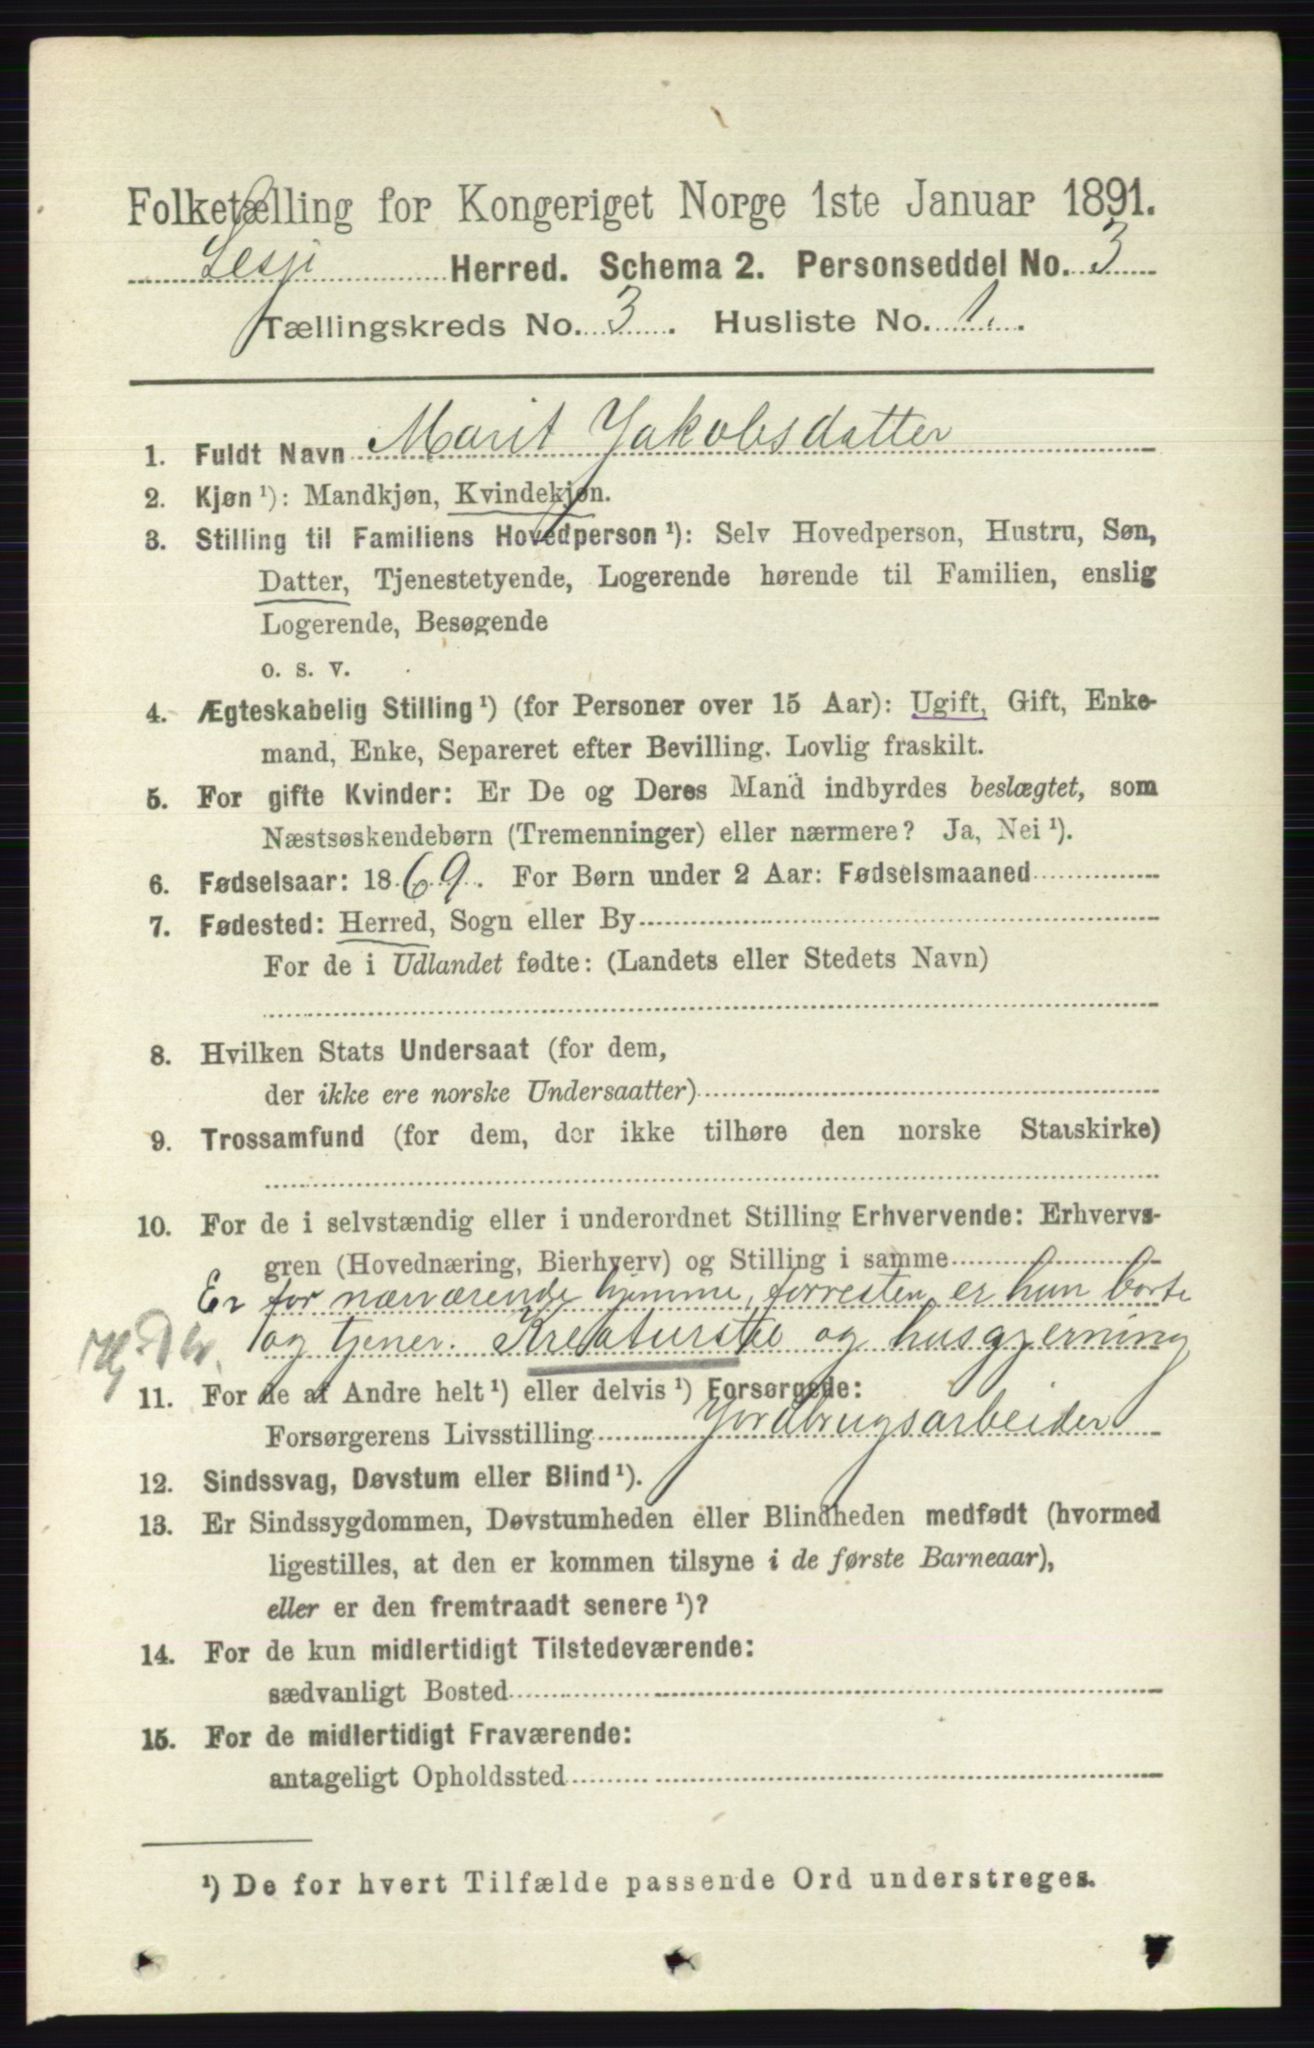 Folketælling for Kongeriget Norge 1ste Januar 1891.
Lesje Herred. Schema 2. Personseddel No. 3
Tællingskreds No. 3. Husliste No. 1.
1. Fuldt Navn Marit Jakobsdatter
2. Kjøn ¹): Mandkjøn, Kvindekjøn.
3. Stilling til Familiens Hovedperson ¹): Selv Hovedperson, Hustru, Søn,
Datter, Tjenestetyende, Logerende hørende til Familien, enslig
Logerende, Besøgende
o. s. v.
4. Ægteskabelig Stilling ¹) (for Personer over 15 Aar): Ugift, Gift, Enke-
mand, Enke, Separeret efter Bevilling. Lovlig fraskilt.
5. For gifte Kvinder: Er De og Deres Mand indbyrdes beslægtet, som
Næstsøskendebørn (Tremenninger) eller nærmere? Ja, Nei ¹).
6. Fødselsaar: 1869. For Børn under 2 Aar: Fødselsmaaned
7. Fødested: Herred, Sogn eller By
For de i Udlandet fødte: (Landets eller Stedets Navn)
8. Hvilken Stats Undersaat (for dem,
der ikke ere norske Undersaatter)
9. Trossamfund (for dem, der ikke tilhøre den norske Statskirke)
10. For de i selvstændig eller i underordnet Stilling Erhvervende: Erhvervs-
gren (Hovednæring, Bierhverv) og Stilling i samme
Er for nærværende hjemme, forresten er hun borte
og tjener. Kreaturstel og husgjerning
11. For de af Andre helt ¹) eller delvis ¹) Forsørgede:
Forsørgerens Livsstilling Jordbrugsarbeider
12. Sindssvag, Døvstum eller Blind ¹).
13. Er Sindssygdommen, Døvstumheden eller Blindheden medfødt (hvormed
ligestilles, at den er kommen tilsyne i de første Barneaar),
eller er den fremtraadt senere ¹)?
14. For de kun midlertidigt Tilstedeværende:
sædvanligt Bosted
15. For de midlertidigt Fraværende:
antageligt Opholdssted
¹) De for hvert Tilfælde passende Ord understreges.